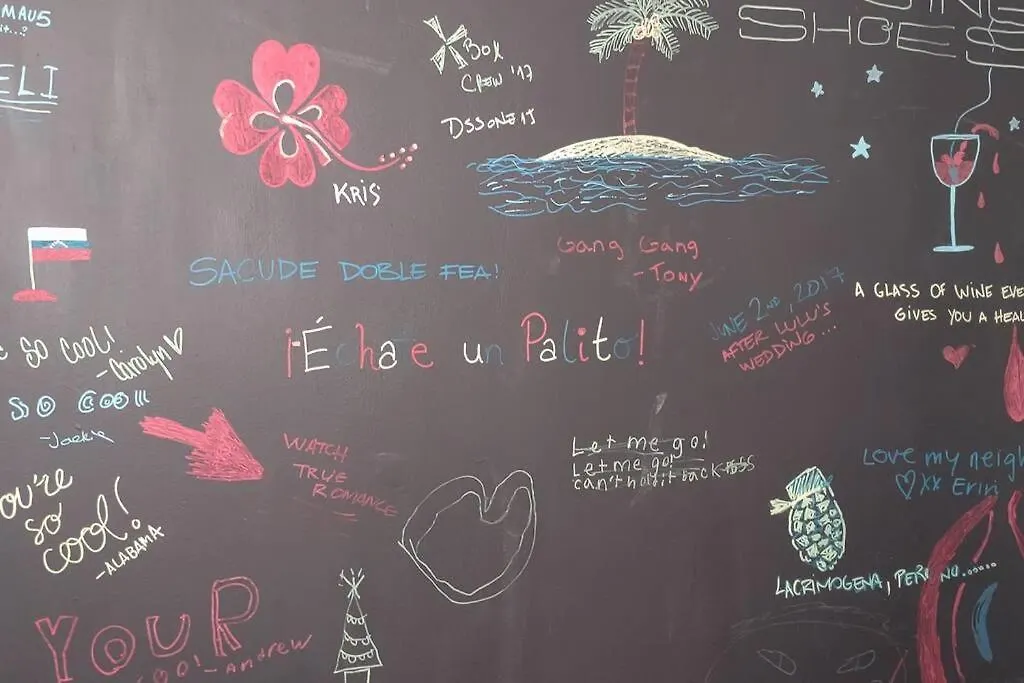 MAU5
it...?
ELI
Box
CREW '17
DSSONEIT
SHOE S
KRIS
Gang Gang
- Tony
SACUDE DOBLE FEA!
¡Échate un Palito!
JUNE 2ND, 2017
AFTER LULU'S
WEDDING...
A GLASS OF WINE EVE
GIVES YOU A HEAL
SO COOL!
- Carolyn
SO COOL!!!
- Jackie
WATCH
TRUE
ROMANCE
Let me go!
Let me go!
can't hold it back
YOU'RE
SO
COOL!
- ALABAMA
Love my neigh
XX Erin
LACRIMOGENA, PERO NO......
YOUR
- Andrew